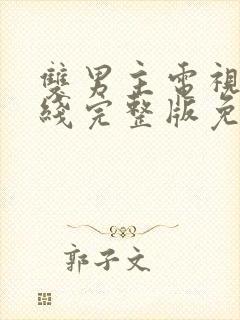 雙男主電視
綫完整版免
郭子文